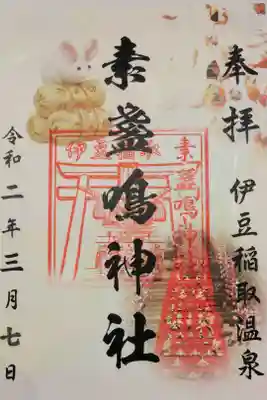 奉拝 伊豆稲取温泉
素盞鳴神社
令和二年三月七日
素盞鳴神社